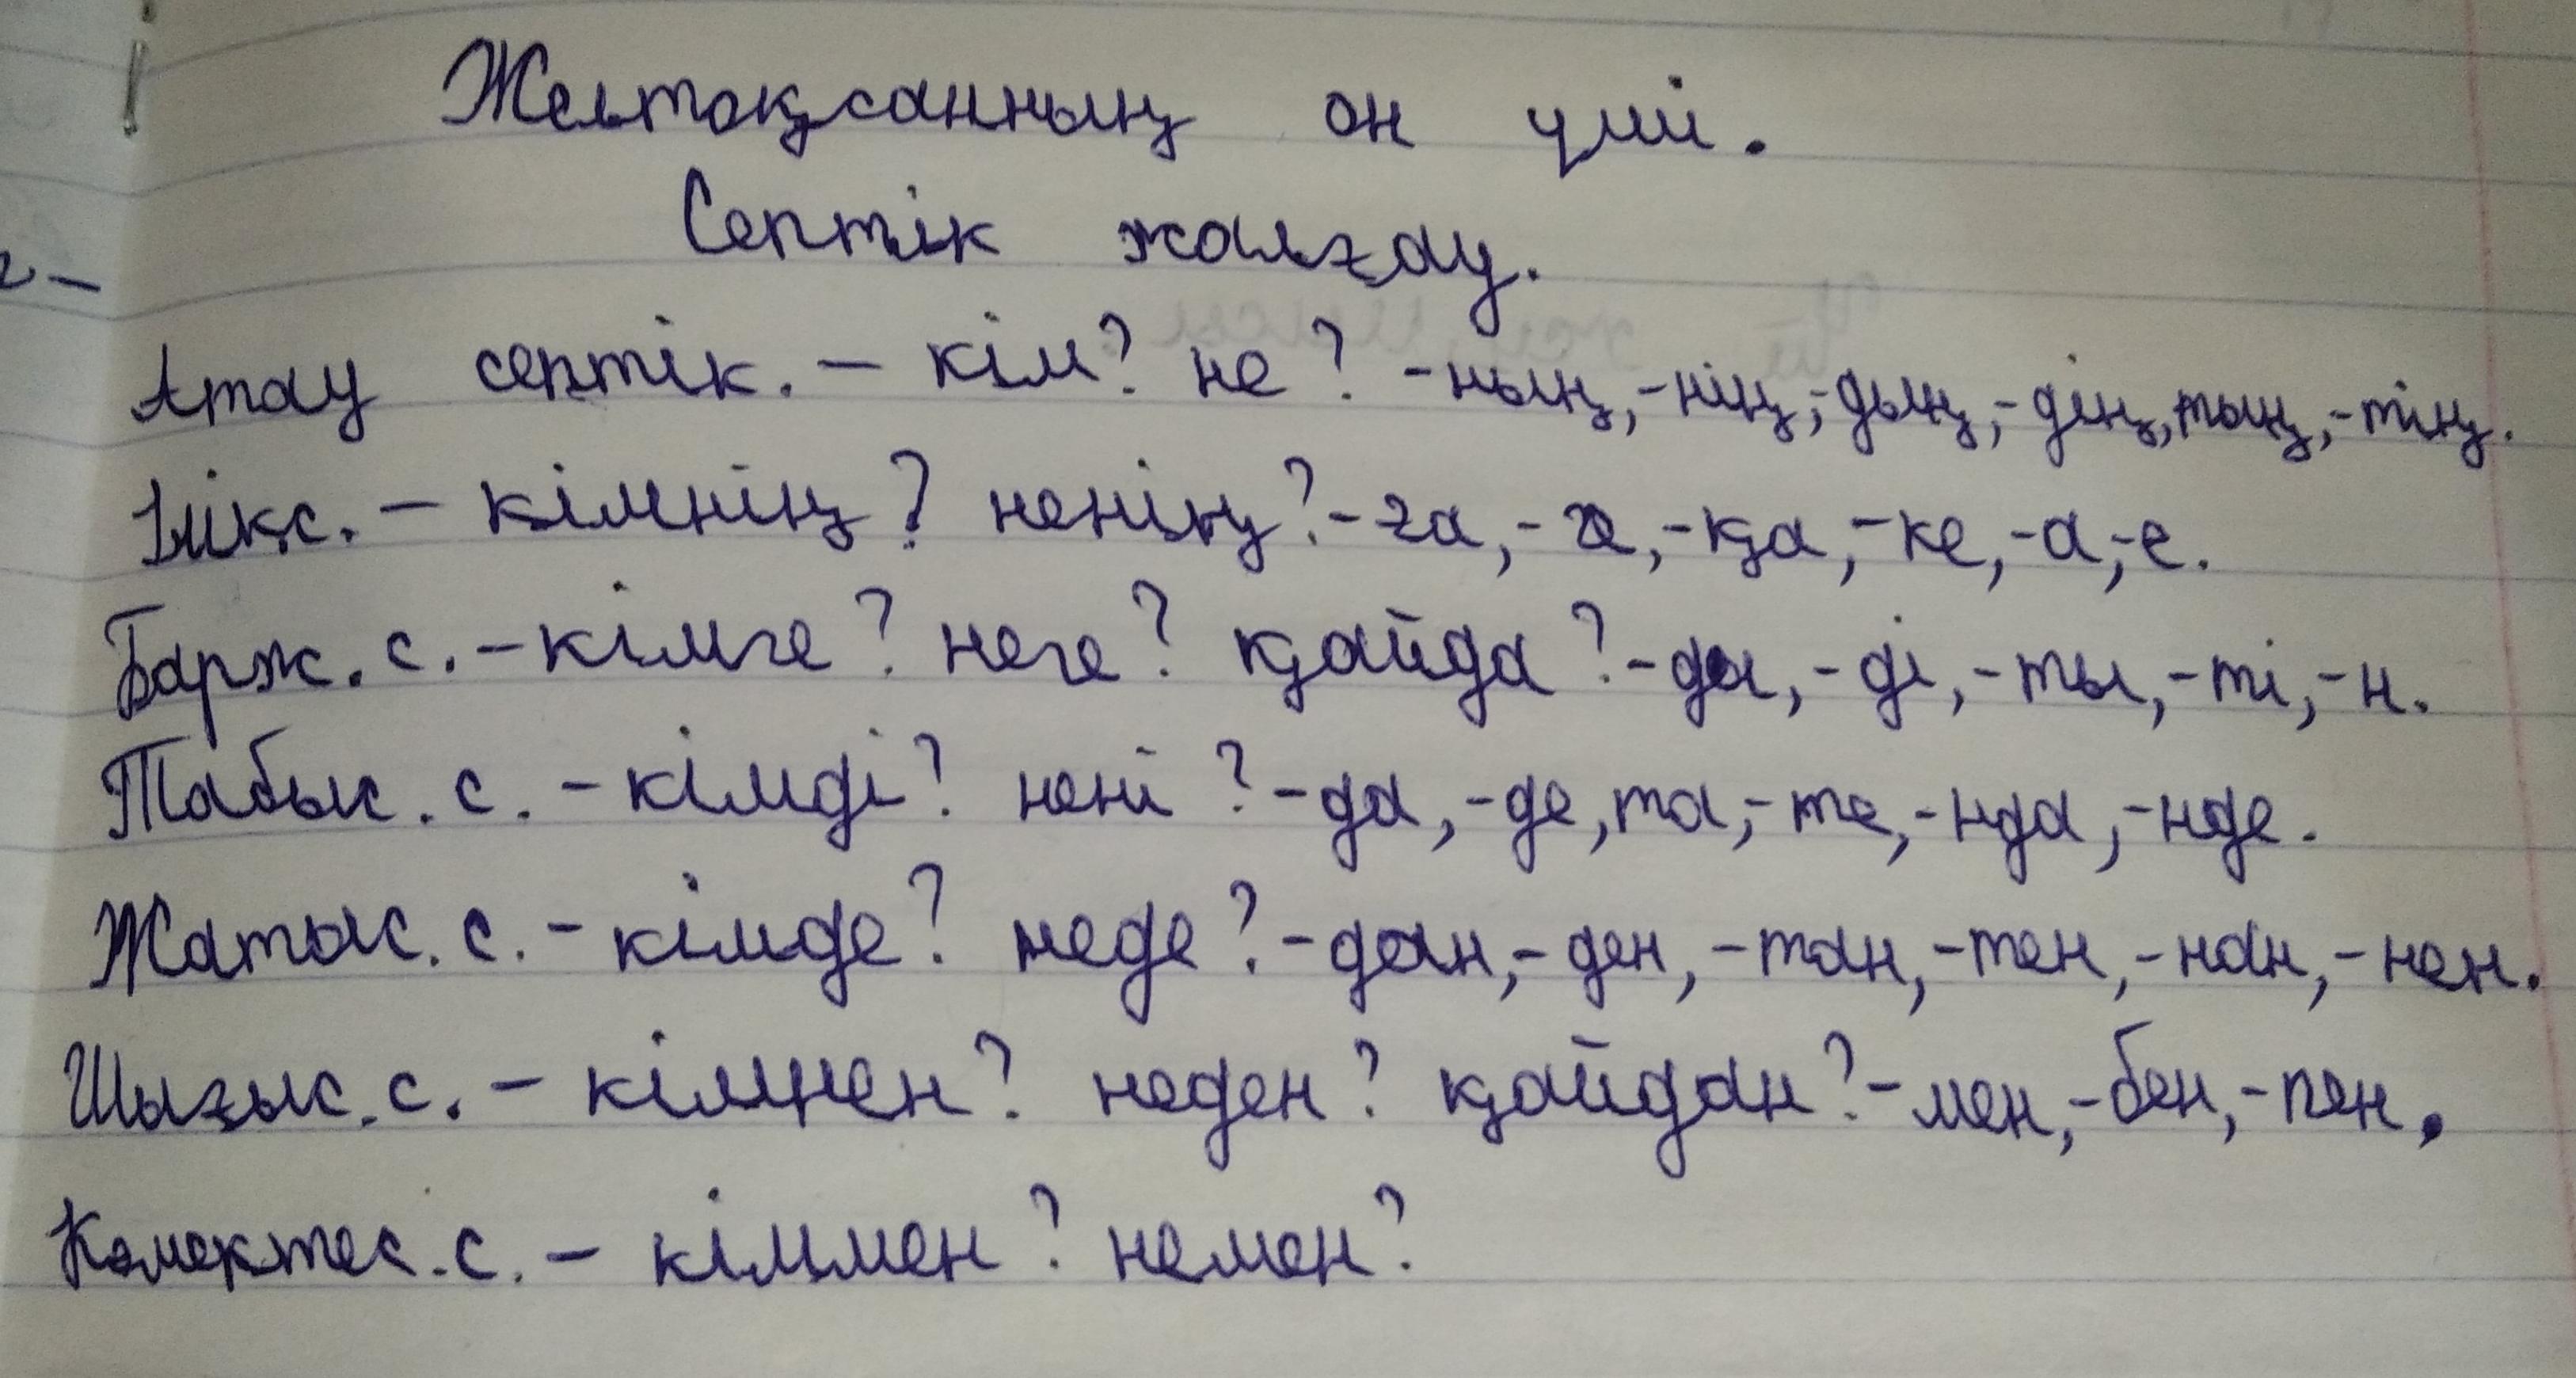 Желтоқсанның он үші.
Септік жалғау.
Атау септік. – кім? не? -ның, -нің, -дың, -дің, тың, -тің.
Ілікс. – кімнің? ненің? -ға, -ге, -қа, -ке, -а, -е.
Барж. с. – кімге? неге? қайда? -ды, -ді, -ты, -ті, -н.
Табыс. с. – кімді? нені? -да, -де, та, -те, -нда, -нде.
Жатыс. с. – кімде? неде? -дан, -ден, -тан, -тен, -нан, -нен.
Шығыс. с. – кімнен? неден? қайдан? -мен, -бен, -пен.
Көмектес. с. – кіммен? немен?